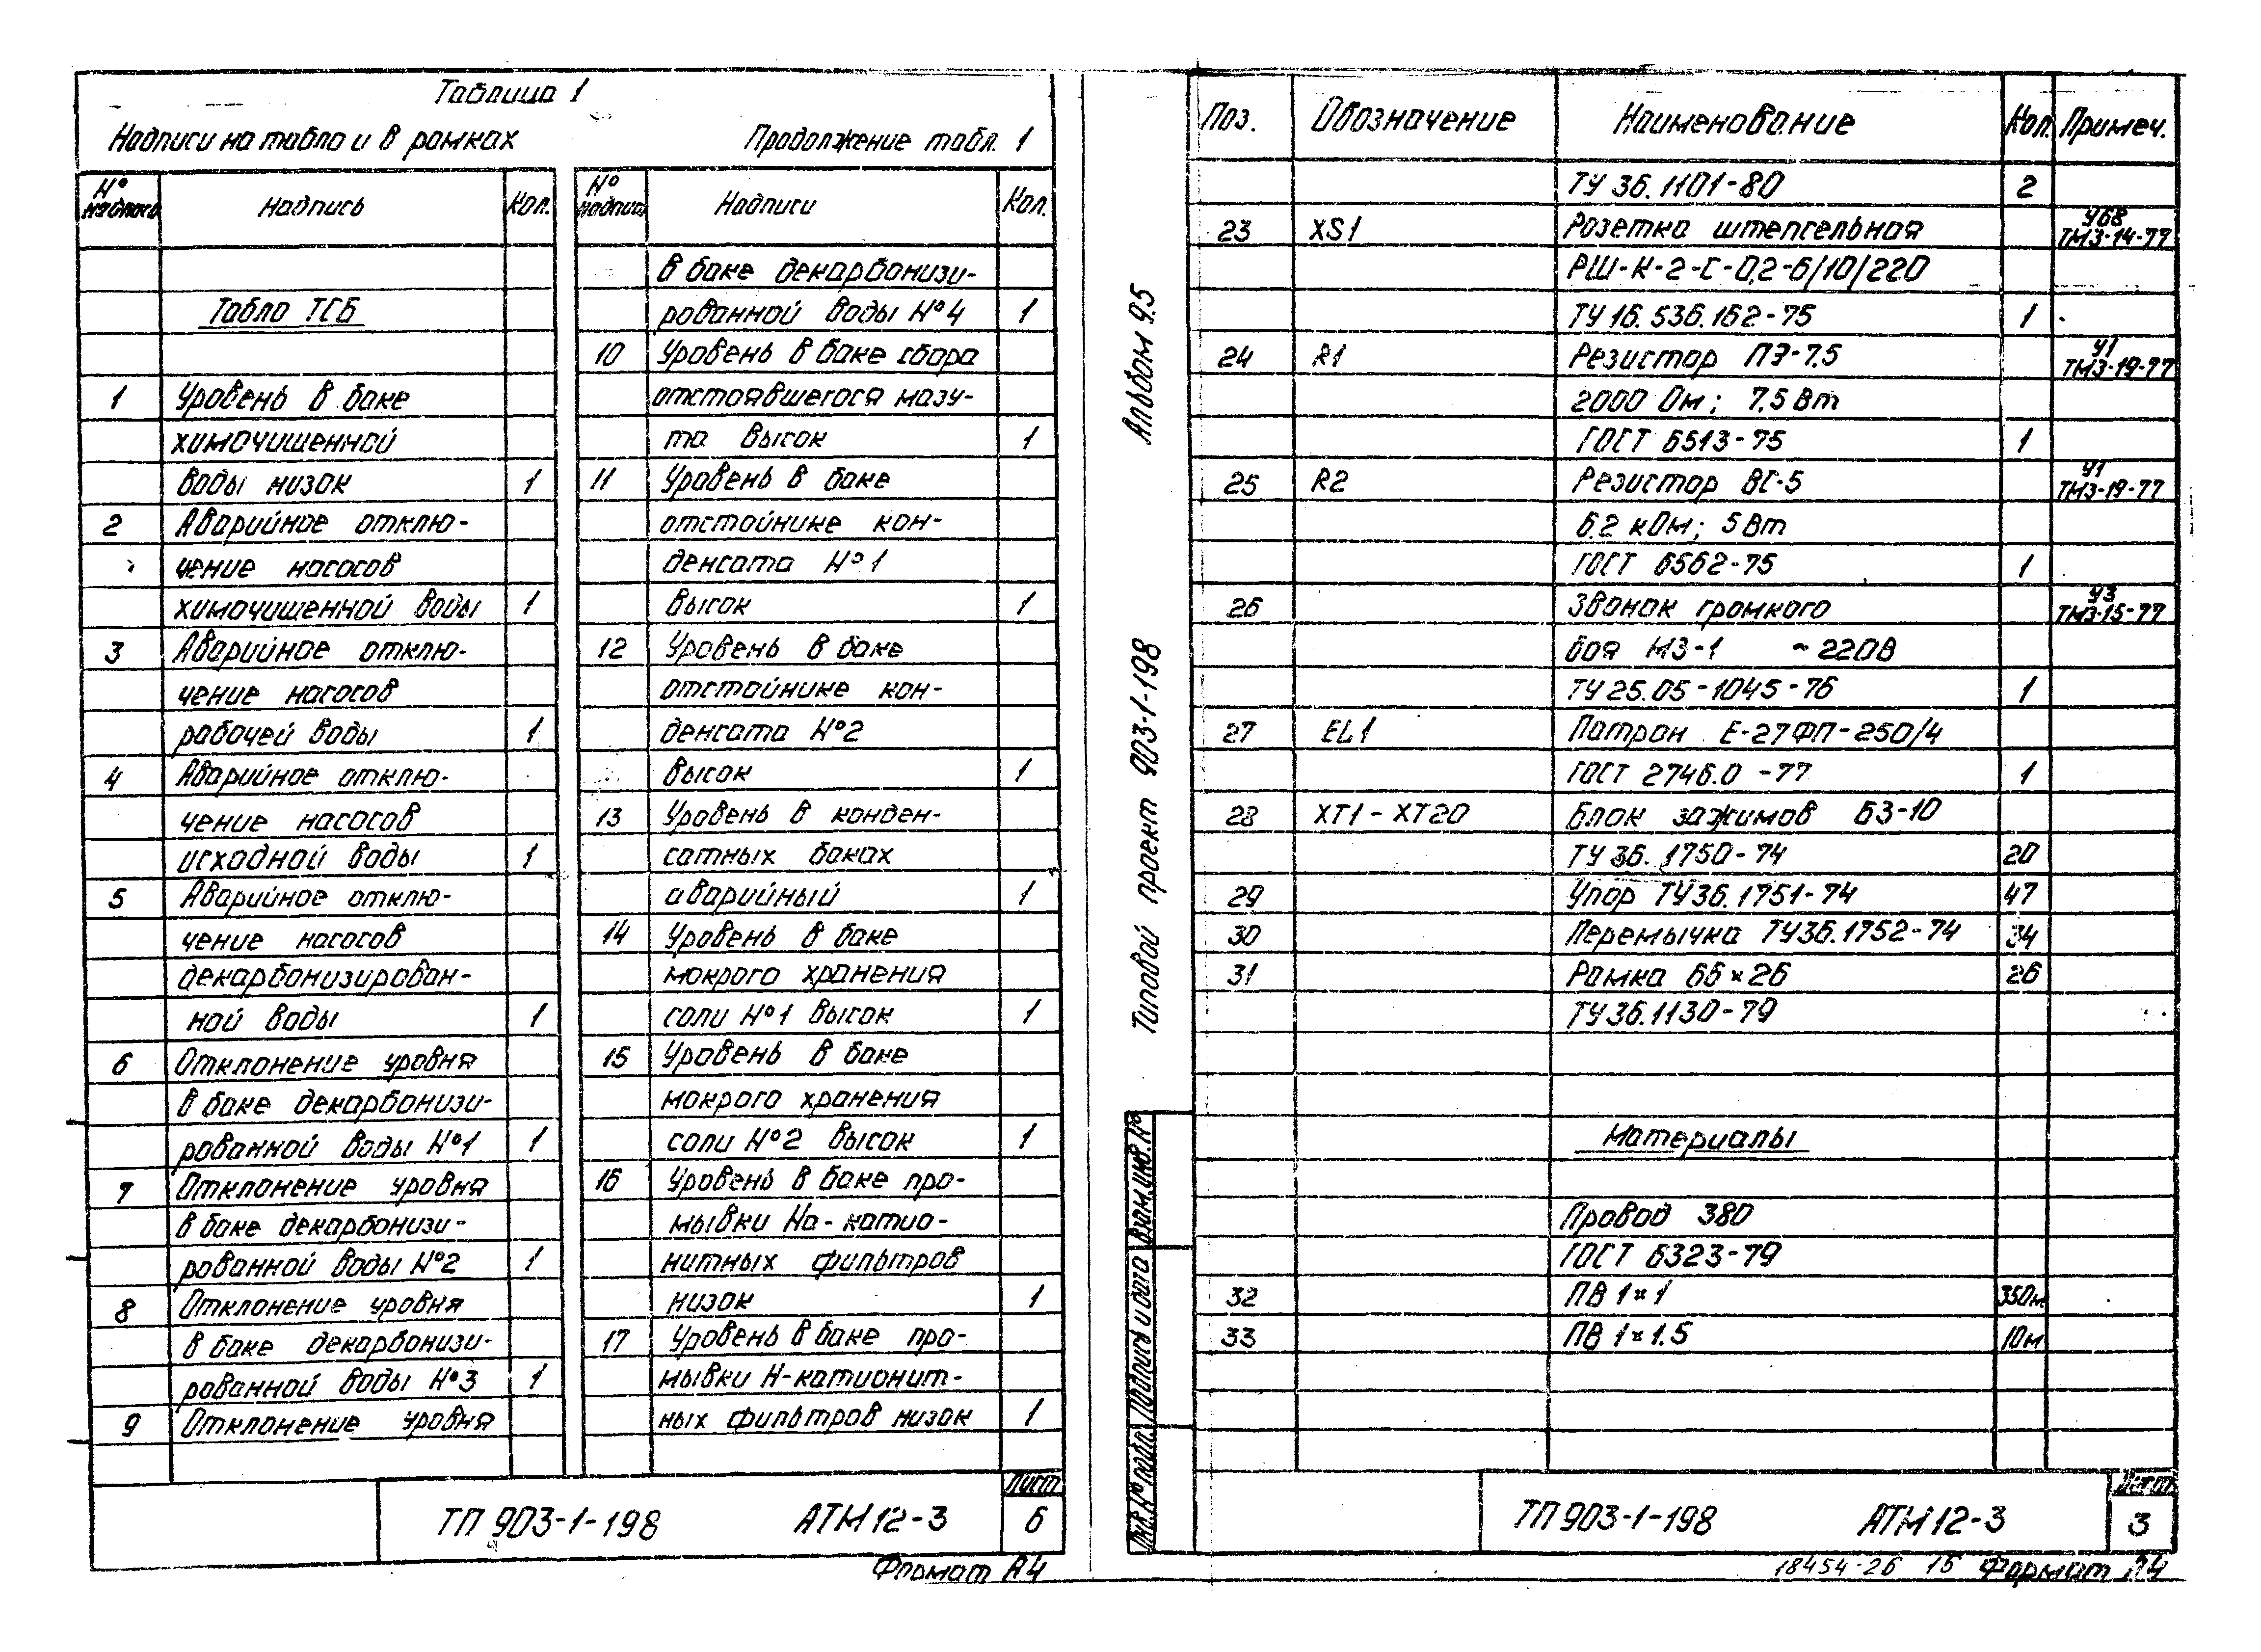 Таблица 1
Надписи на табло и в рамках
Продолжение табл. 1
№ надписи
Надпись
Кол.
Табло ТСБ
1 Уровень в баке
химочищенной
воды низок 1
2 Аварийное отклю-
чение насосов
химочищенной воды 1
3 Аварийное отклю-
чение насосов
рабочей воды 1
4 Аварийное отклю-
чение насосов
исходной воды 1
5 Аварийное отклю-
чение насосов
декарбонизирован-
ной воды 1
6 Отклонение уровня
в баке декарбонизи-
рованной воды №1 1
7 Отклонение уровня
в баке декарбонизи-
рованной воды №2 1
8 Отклонение уровня
в баке декарбонизи-
рованной воды №3 1
9 Отклонение уровня
№ надписи
Надписи
Кол.
в баке декарбонизи-
рованной воды №4 1
10 Уровень в баке сбора
отстоявшегося мазу-
та высок 1
11 Уровень в баке
отстойнике кон-
денсата №1
высок 1
12 Уровень в баке
отстойнике кон-
денсата №2
высок 1
13 Уровень в конден-
сатных баках
аварийный 1
14 Уровень в баке
мокрого хранения
соли №1 высок 1
15 Уровень в баке
мокрого хранения
соли №2 высок 1
16 Уровень в баке про-
мывки Na-катио-
нитных фильтров
низок 1
17 Уровень в баке про-
мывки Н-катионит-
ных фильтров низок 1
ТП 903-1-198 АТМ 12-3
Лист
6
Формат А4
Альбом 9.5
Типовой проект 903-1-198
Взам.инв.№
Подпись и дата
Инв.№ подл.
Поз. Обозначение Наименование Кол. Примеч.
ТУ 36.1101-80 2
23 XS1 Розетка штепсельная У68 ТМ3-14-77
РШ-К-2-С-0,2-6/10/220
ТУ 16.536.162-75 1
24 R1 Резистор ПЭ-7,5 У1 ТМ3-19-77
2000 Ом; 7,5 Вт
ГОСТ 6513-75 1
25 R2 Резистор ВС-5 У1 ТМ3-19-77
6.2 кОм; 5 Вт
ГОСТ 6562-75 1
26 Звонок громкого У3 ТМ3-15-77
боя МЗ-1 ~220В
ТУ 25.05-1045-76 1
27 EL1 Патрон Е-27ФП-250/4
ГОСТ 2746.0-77 1
28 ХТ1-ХТ20 Блок зажимов БЗ-10
ТУ 36.1750-74 20
29 Упор ТУ36.1751-74 47
30 Перемычка ТУ36.1752-74 34
31 Рамка 66×26 26
ТУ36.1130-79
Материалы
Провод 380
ГОСТ 6323-79
32 ПВ 1×1 350м
33 ПВ 1×1.5 10м
ТП 903-1-198 АТМ 12-3
Лист
3
18454-26 15 Формат А4